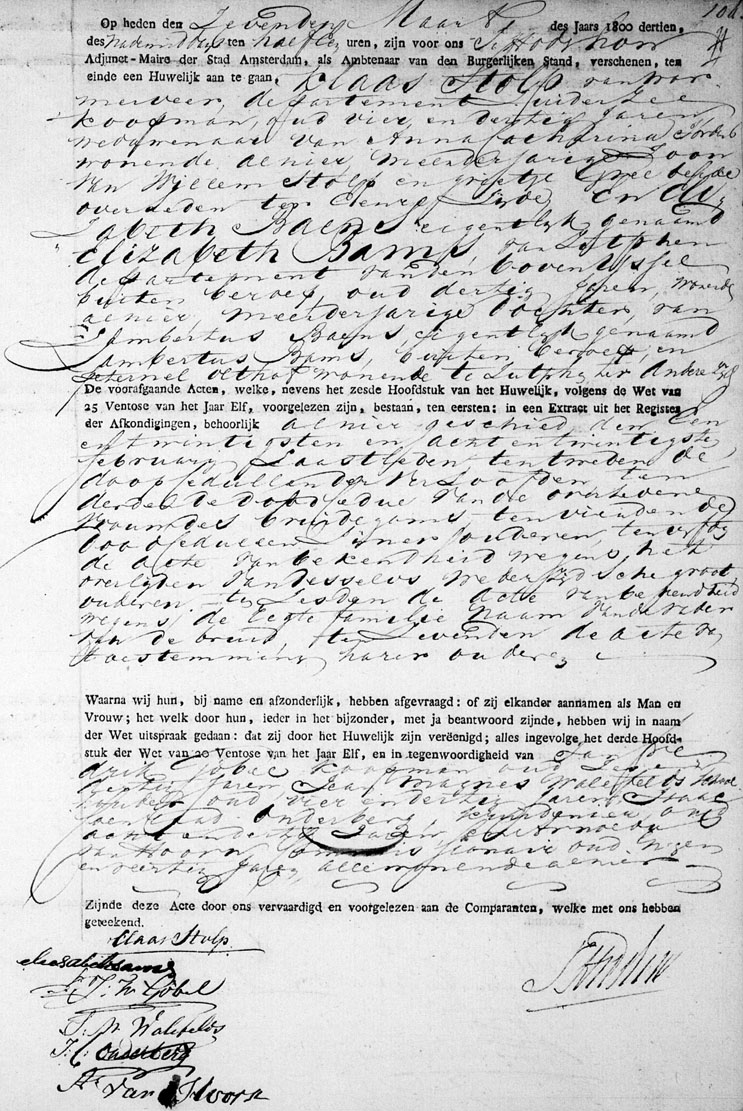 Op heden den Zevenden Maart des Jaars 1800 dertien,
des Nademiddags ten half uren, zijn voor ons
Adjunct-Maire der Stad Amsterdam, als Ambtenaar van den Burgerlijken Stand, verschenen, ten
einde een Huwelijk aan te gaan, Klaas Stolp van Wor-
merveer, departement Zuiderzee
koopman, oud vier en dertig jaren
weduwenaar van Anna Catharina
wonende alhier, meerderjarige Zoon
van Willem Stolp en Grietje beide
overleden ten Eenre Zijde En Eli,
zabeth Baens eigentlijk genaamd
Elizabeth Bams, van Zutphen
departement van den boven IJssel
buiten beroep, oud dertig Jaren, wonende
alhier, meerderjarige dochter van
Lambertus Baens, eigentlijk genaamd
Lambertus Bams, buiten beroep, en
Olthof wonende te Zutphen ter Andere
De voorafgaande Acten, welke, nevens het zesde Hoofdstuk van het Huwelijk, volgens de Wet van
25 Ventose van het Jaar Elf, voorgelezen zijn, bestaan, ten eersten: in een Extract uit het Register
der Afkondigingen, behoorlijk alhier geschied den Een
entwintigsten en achtentwintigste
februarij Laastleden ten tweden de
doopcedullen der Verloofden ten
derde de doodcedul van de overledene
vrouw des bruidegoms ten vierden de
doodcedullen Zijner ouderen, ten vijfde
de acte van bekendheid wegens het
overlijden van desselvs wederzijdsche groot
ouderen ten Zesden de acte van bekendheid
wegens de Egte familie Naam van de vader
van de bruid, ten Zevenden de acte van
toestemming harer ouderen
Waarna wij hun, bij name en afzonderlijk, hebben afgevraagd: of zij elkander aannamen als Man en
Vrouw; het welk door hun, ieder in het bijzonder, met ja beantwoord zijnde, hebben wij in naam
der Wet uitspraak gedaan: dat zij door het Huwelijk zijn verëenigd; alles ingevolge het derde Hoofd-
stuk der Wet van 20 Ventose van het Jaar Elf, en in tegenwoordigheid van Jan
drik Göbel koopman oud Zeven
dertig Jaren Jean Walefelds
oud vier en dertig Jaren, Isaac
Coenraad Onderberg, kruidenier, oud
achtendertig Jaren en Arnoldus
van Hoorn Commissionair oud Negen
en veertig Jaren, alle wonende alhier
Zijnde deze Acte door ons vervaardigd en voorgelezen aan de Comparanten, welke met ons hebben
geteekend.
Claas Stolp
Elisabeth Bams
J. W Göbel
J. M Walefelds
J. C. Onderberg
A. van Hoorn